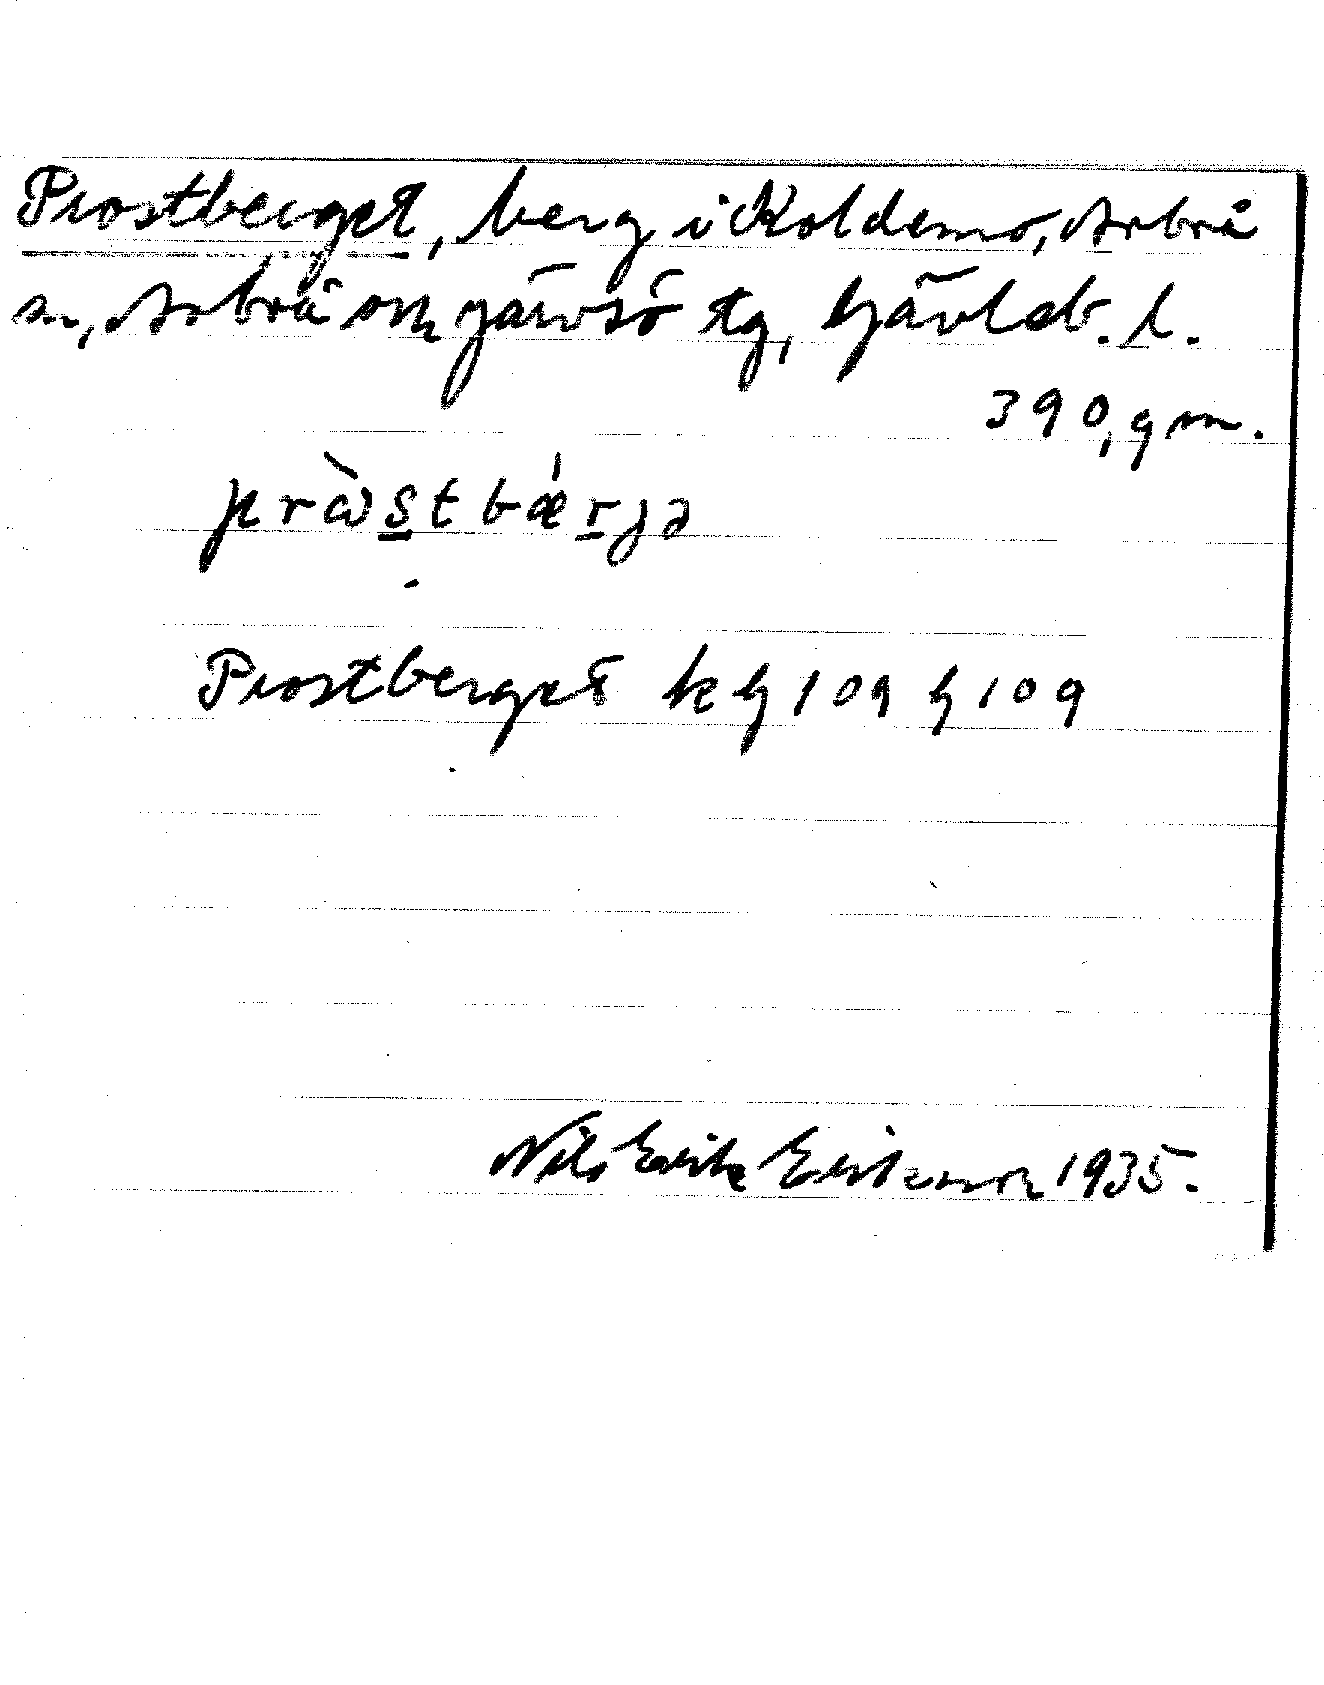 Prostberget, berg i Koldemo, Arbrå
sn, Arbrå och Järvsö tg, Gävleb. l.
390,9 m.
prὼstbærjə
Prostberget kg 109 G 109
Nils Erik Eriksson 1935.